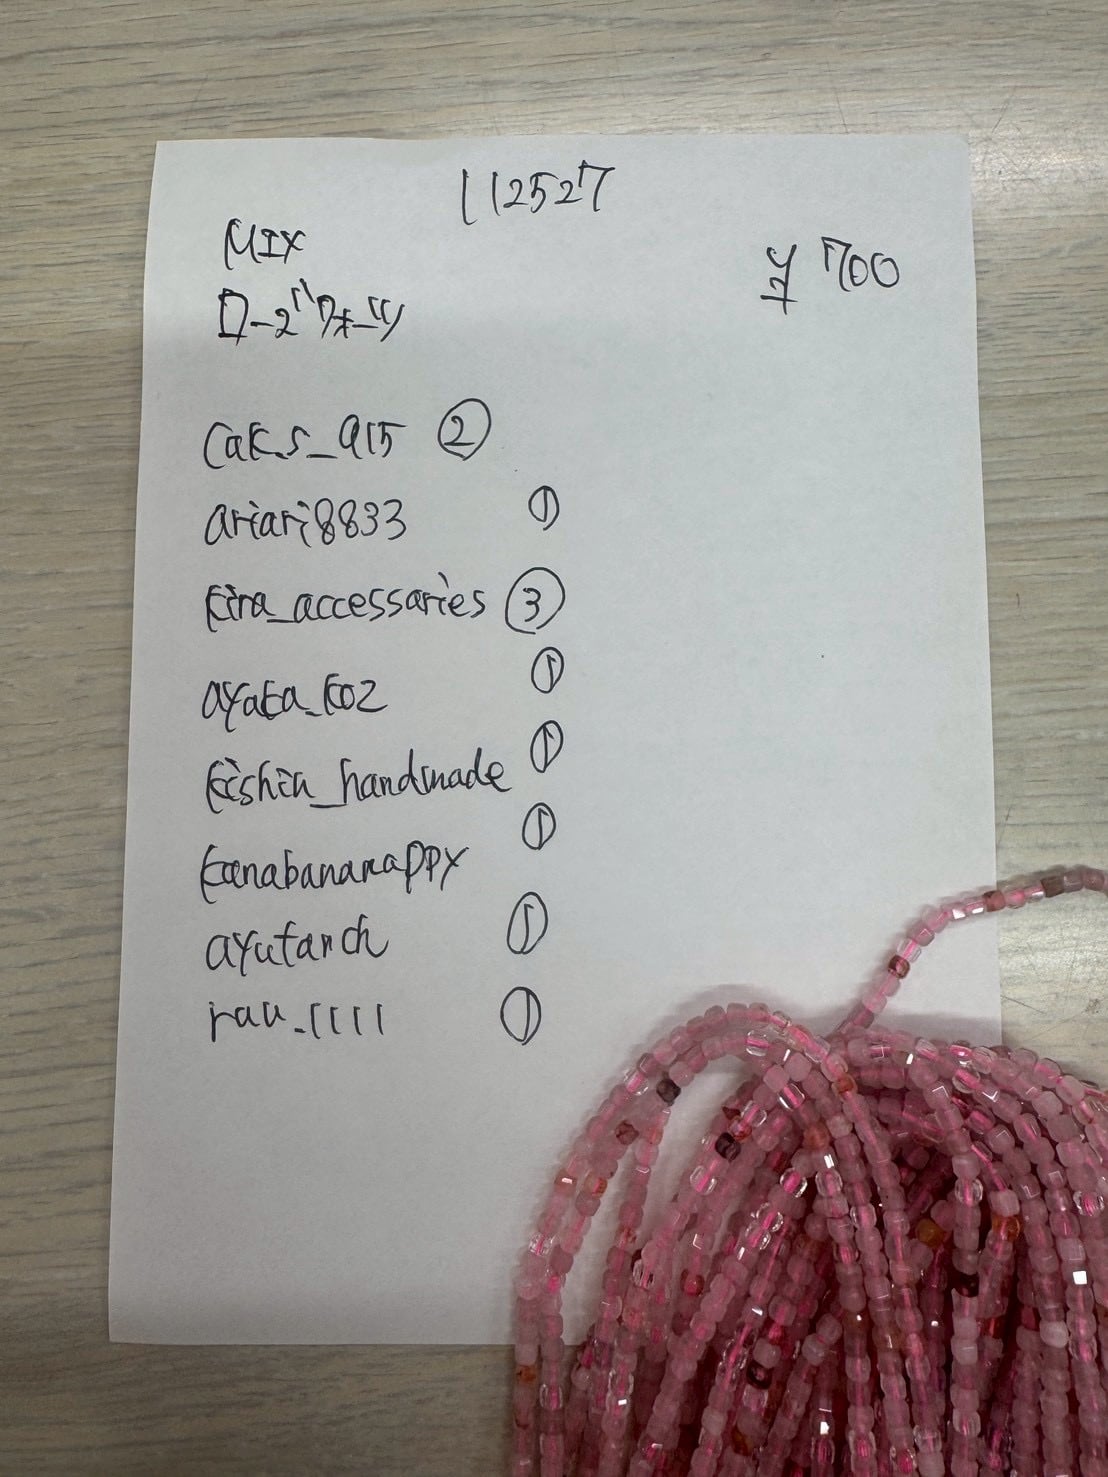 112527
MIX
¥700
ローズクォーツ
caks_915 ②
ariari8833 ①
kira_accessaries ③
ayaka_koz ①
kishin_handmade ①
kanabananappy ①
ayutanch ①
rau_1111 ①